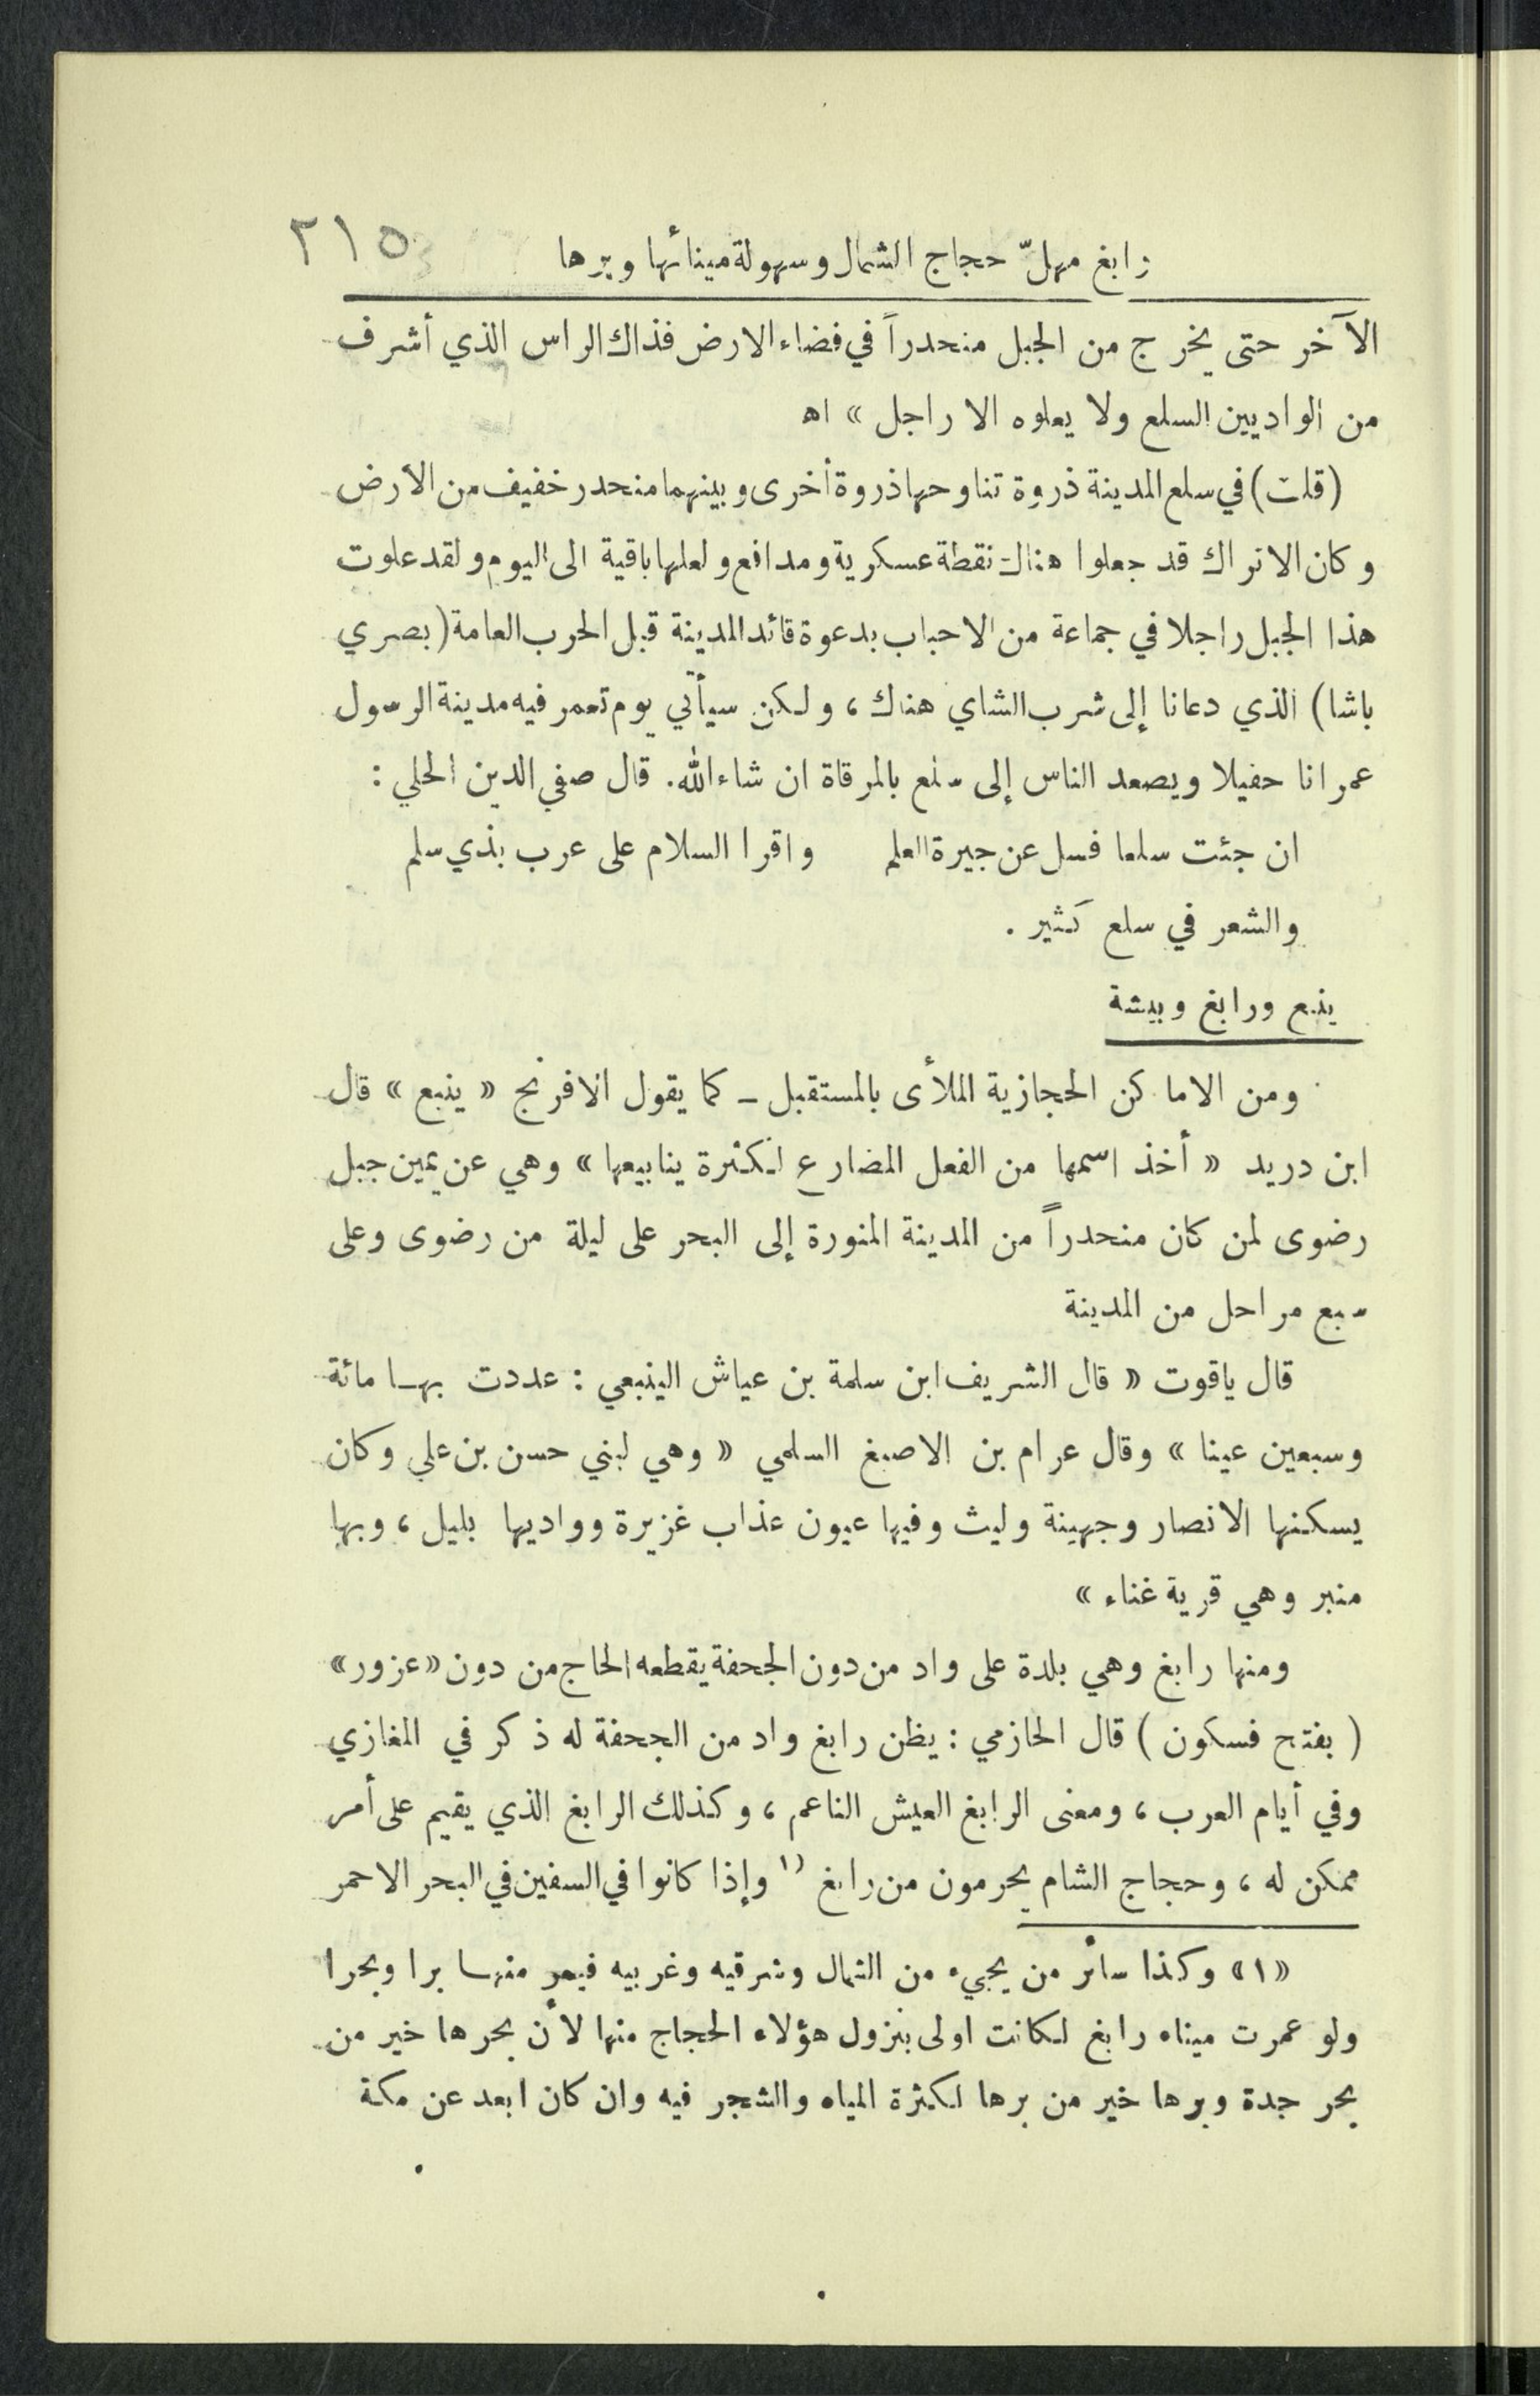 رابغ مهلّ حجاج الشمال وسهولة مينائها وبرها ٢١٥
الآخر حتى يخرج من الجبل منحدراً في فضاء الارض فذاك الراس الذي أشرف
من الواديين السلع ولا يعلوه الا راجل » اه
(قلت) في سلع المدينة ذروة تناوحها ذروة أخرى وبينهما منحدر خفيف من الارض
وكان الاتراك قد جعلوا هناك نقطة عسكرية ومدافع ولعلها باقية الى اليوم ولقد علوت
هذا الجبل راجلا في جماعة من الاحباب بدعوة قائد المدينة قبل الحرب العامة (بصري
باشا) الذي دعانا إلى شرب الشاي هناك ، ولكن سيأتي يوم تعمر فيه مدينة الرسول
عمرانا حفيلا ويصعد الناس إلى سلع بالمرقاة ان شاء الله. قال صفي الدين الحلي :
ان جئت سلعا فسل عن جيرة العلم واقرا السلام على عرب بذي سلم
والشعر في سلع كثير .
ينبع ورابغ وبيشة
ومن الاماكن الحجازية الملأى بالمستقبل – كما يقول الافرنج « ينبع » قال
ابن دريد « أخذ اسمها من الفعل المضارع لكثرة ينابيعها » وهي عن يمين جبل
رضوى لمن كان منحدراً من المدينة المنورة إلى البحر على ليلة من رضوى وعلى
سبع مراحل من المدينة
قال ياقوت « قال الشريف ابن سلمة بن عياش الينبعي : عددت بها مائة
وسبعين عينا » وقال عرام بن الاصبغ السلمي « وهي لبني حسن بن علي وكان
يسكنها الانصار وجهينة وليث وفيها عيون عذاب غزيرة وواديها بليل ، وبها
منبر وهي قرية غناء »
ومنها رابغ وهي بلدة على واد من دون الجحفة يقطعه الحاج من دون «عزور»
( بفتح فسكون ) قال الحازمي : يظن رابغ واد من الجحفة له ذكر في المغازي
وفي أيام العرب ، ومعنى الرابغ العيش الناعم ، وكذلك الرابغ الذي يقيم على أمر
ممكن له ، وحجاج الشام يحرمون من رابغ ١) وإذا كانوا في السفين في البحر الاحمر
«١» وكذا سائر من يجيء من الشمال وشرقيه وغربيه فيمر منها برا وبحرا
ولو عمرت ميناه رابغ لكانت اولى بنزول هؤلاء الحجاج منها لأن بحرها خير من
بحر جدة وبرها خير من برها لكثرة المياه والشجر فيه وان كان ابعد عن مكة